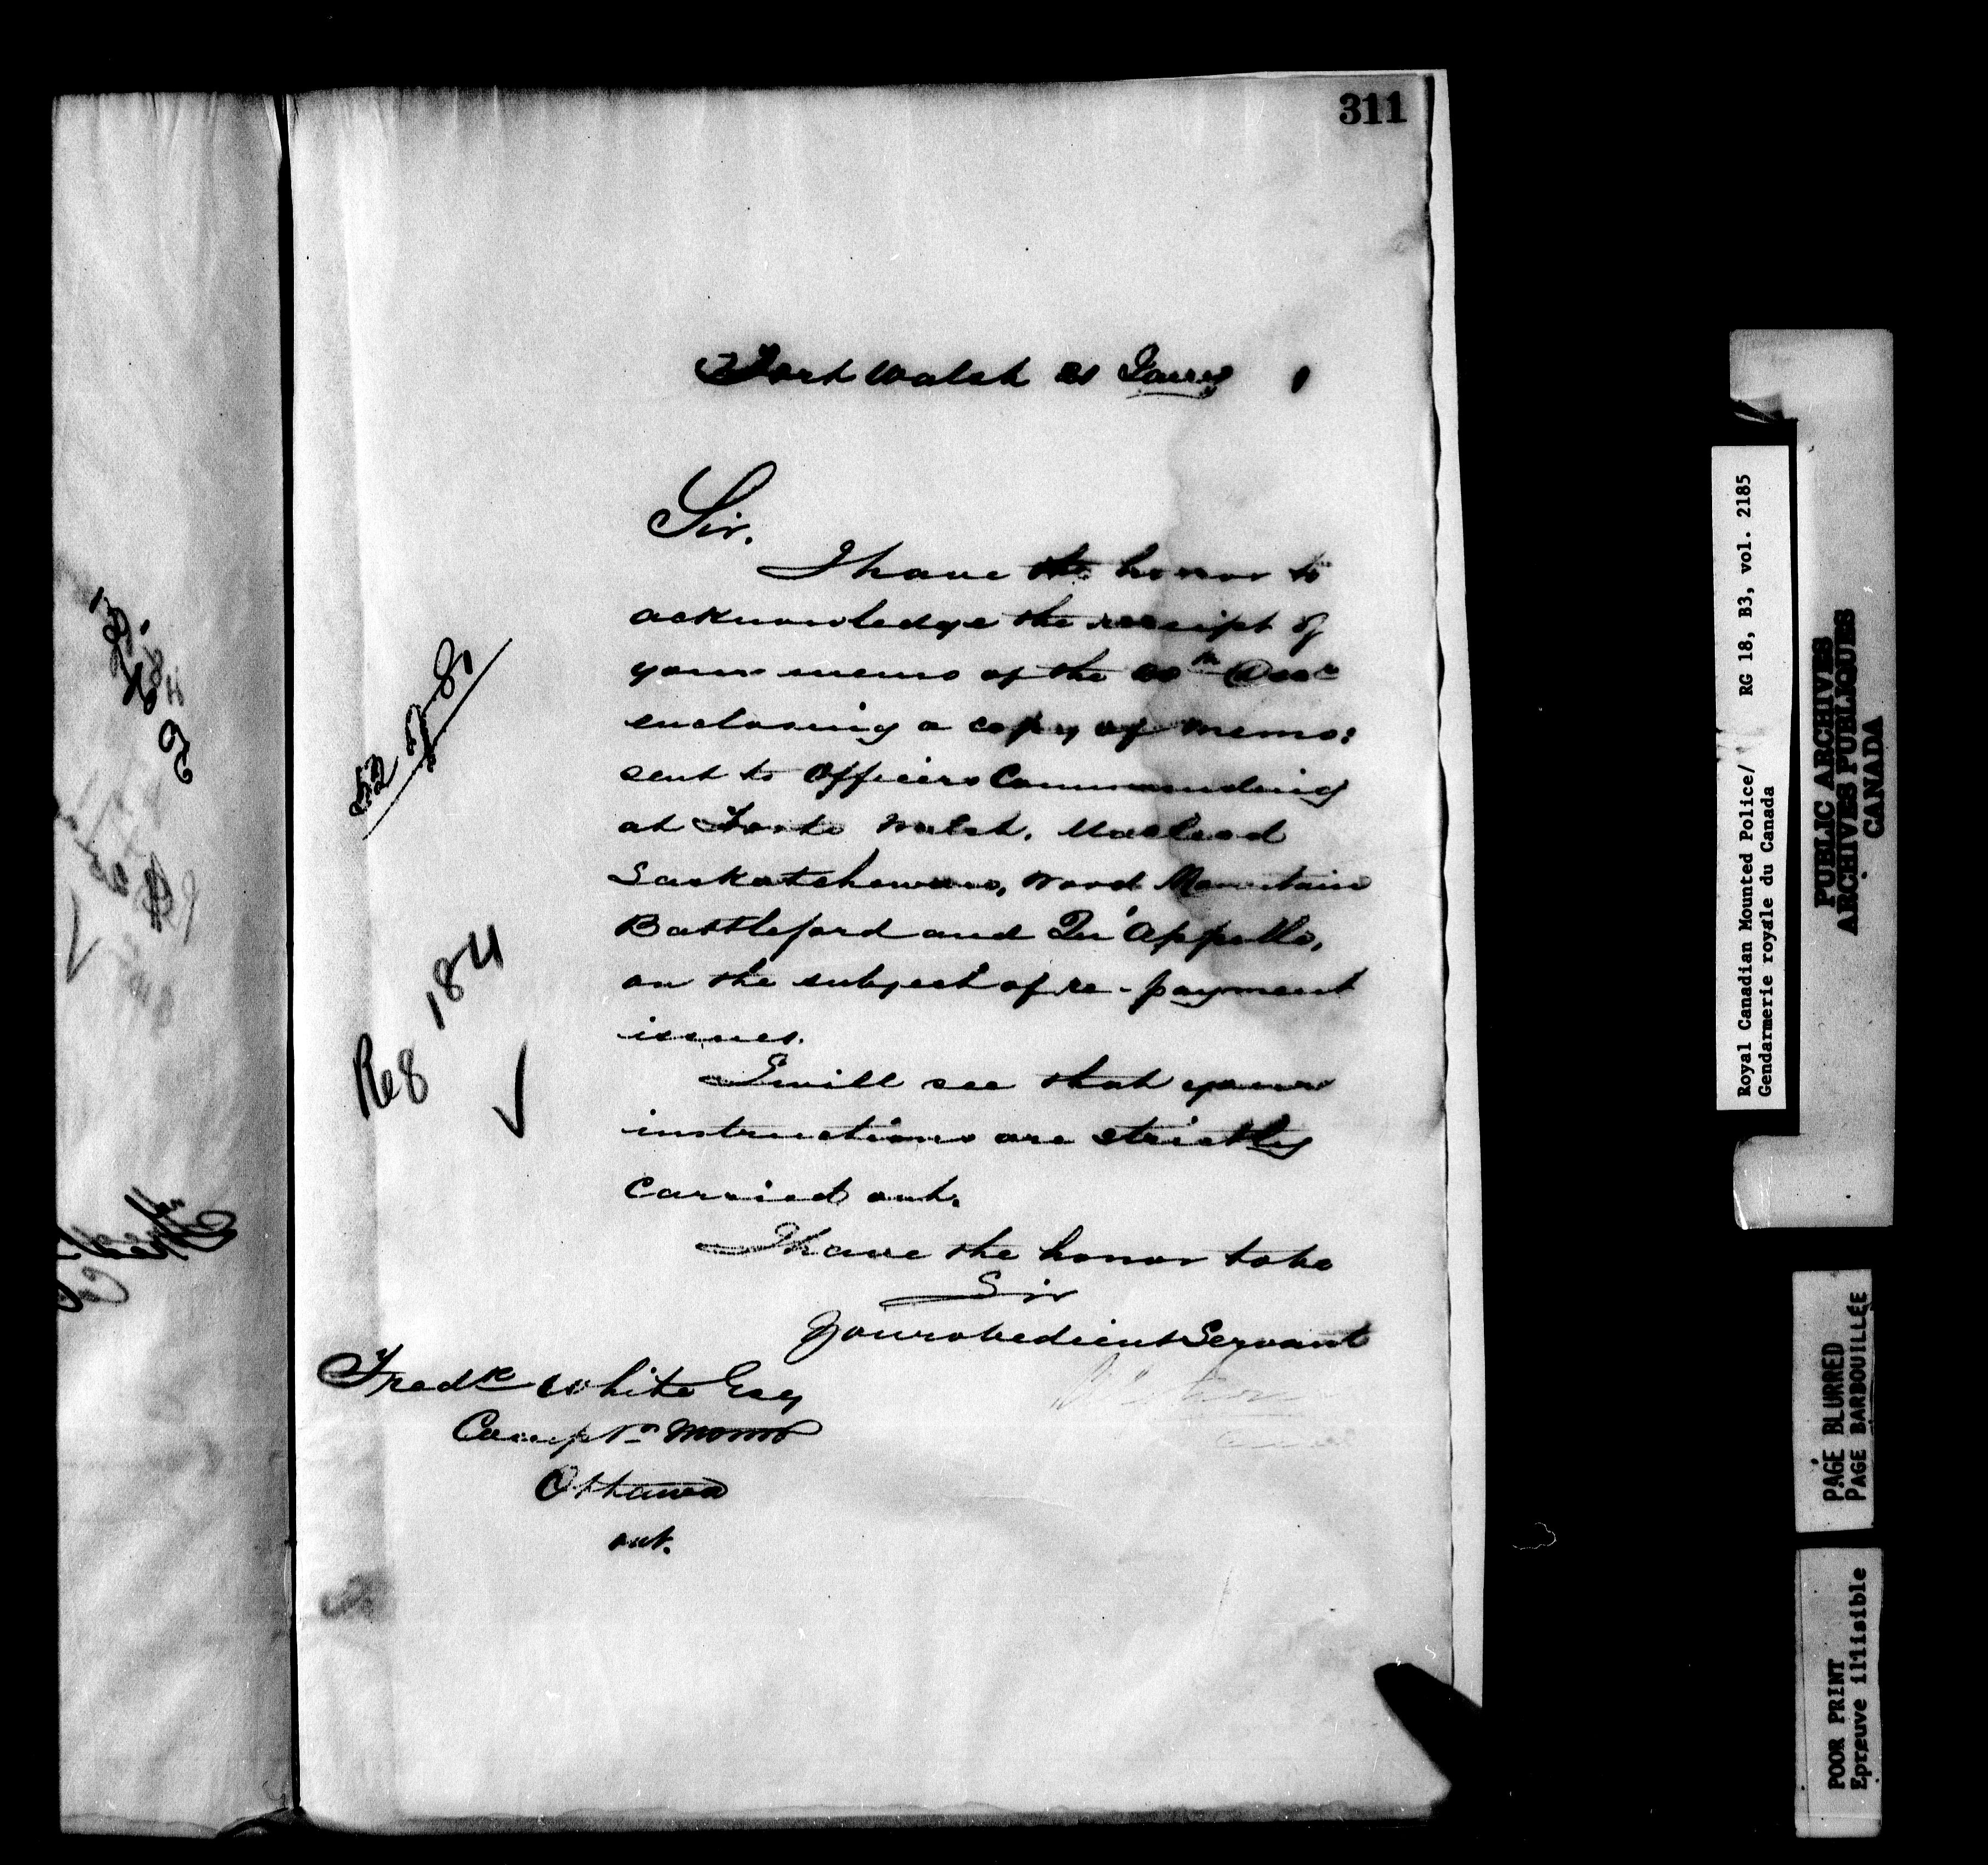 311
Fort Walsh 21 Jany 1
Sir.
I have the honor to
acknowledge the receipt of
your memo of the 20th Decr
enclosing a copy of memo:
sent to Officers Commanding
at Forts Walsh. Macleod
Saskatchewan, Wood Mountain
Battleford and Qu'Appelle,
on the subject of re-payment
issues.
I will see that your
instructions are strictly
carried out.
I have the honor to be
Sir
Your obedient Servant
Fredk White Esq
Comptr
Ottawa
ont.
52
Reg 184
Royal Canadian Mounted Police/ RG 18, B3, vol. 2185
Gendarmerie royale du Canada
PUBLIC ARCHIVES
ARCHIVES PUBLIQUES
CANADA
PAGE BLURRED
PAGE BARBOUILLÉE
POOR PRINT
Epreuve illisible